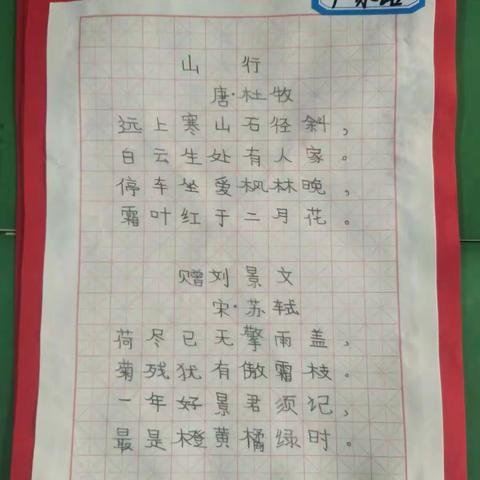 山行
唐·杜牧
远上寒山石径斜，
白云生处有人家。
停车坐爱枫林晚，
霜叶红于二月花。
赠刘景文
宋·苏轼
荷尽已无擎雨盖，
菊残犹有傲霜枝。
一年好景君须记，
最是橙黄橘绿时。